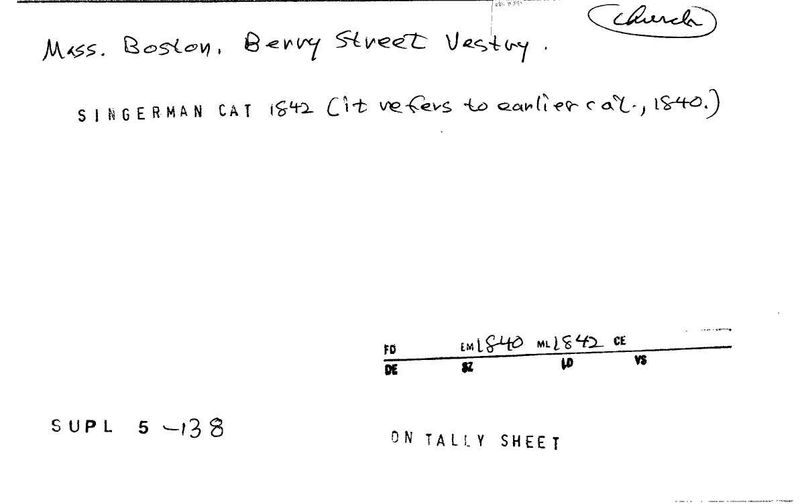 Church
Mass. Boston, Berry Street Vestry.
SINGERMAN CAT 1842 (it refers to earlier cat., 1840.)
FD EM 1840 ML 1842 CE
DE SZ LD VS
SUPL 5 -138
ON TALLY SHEET